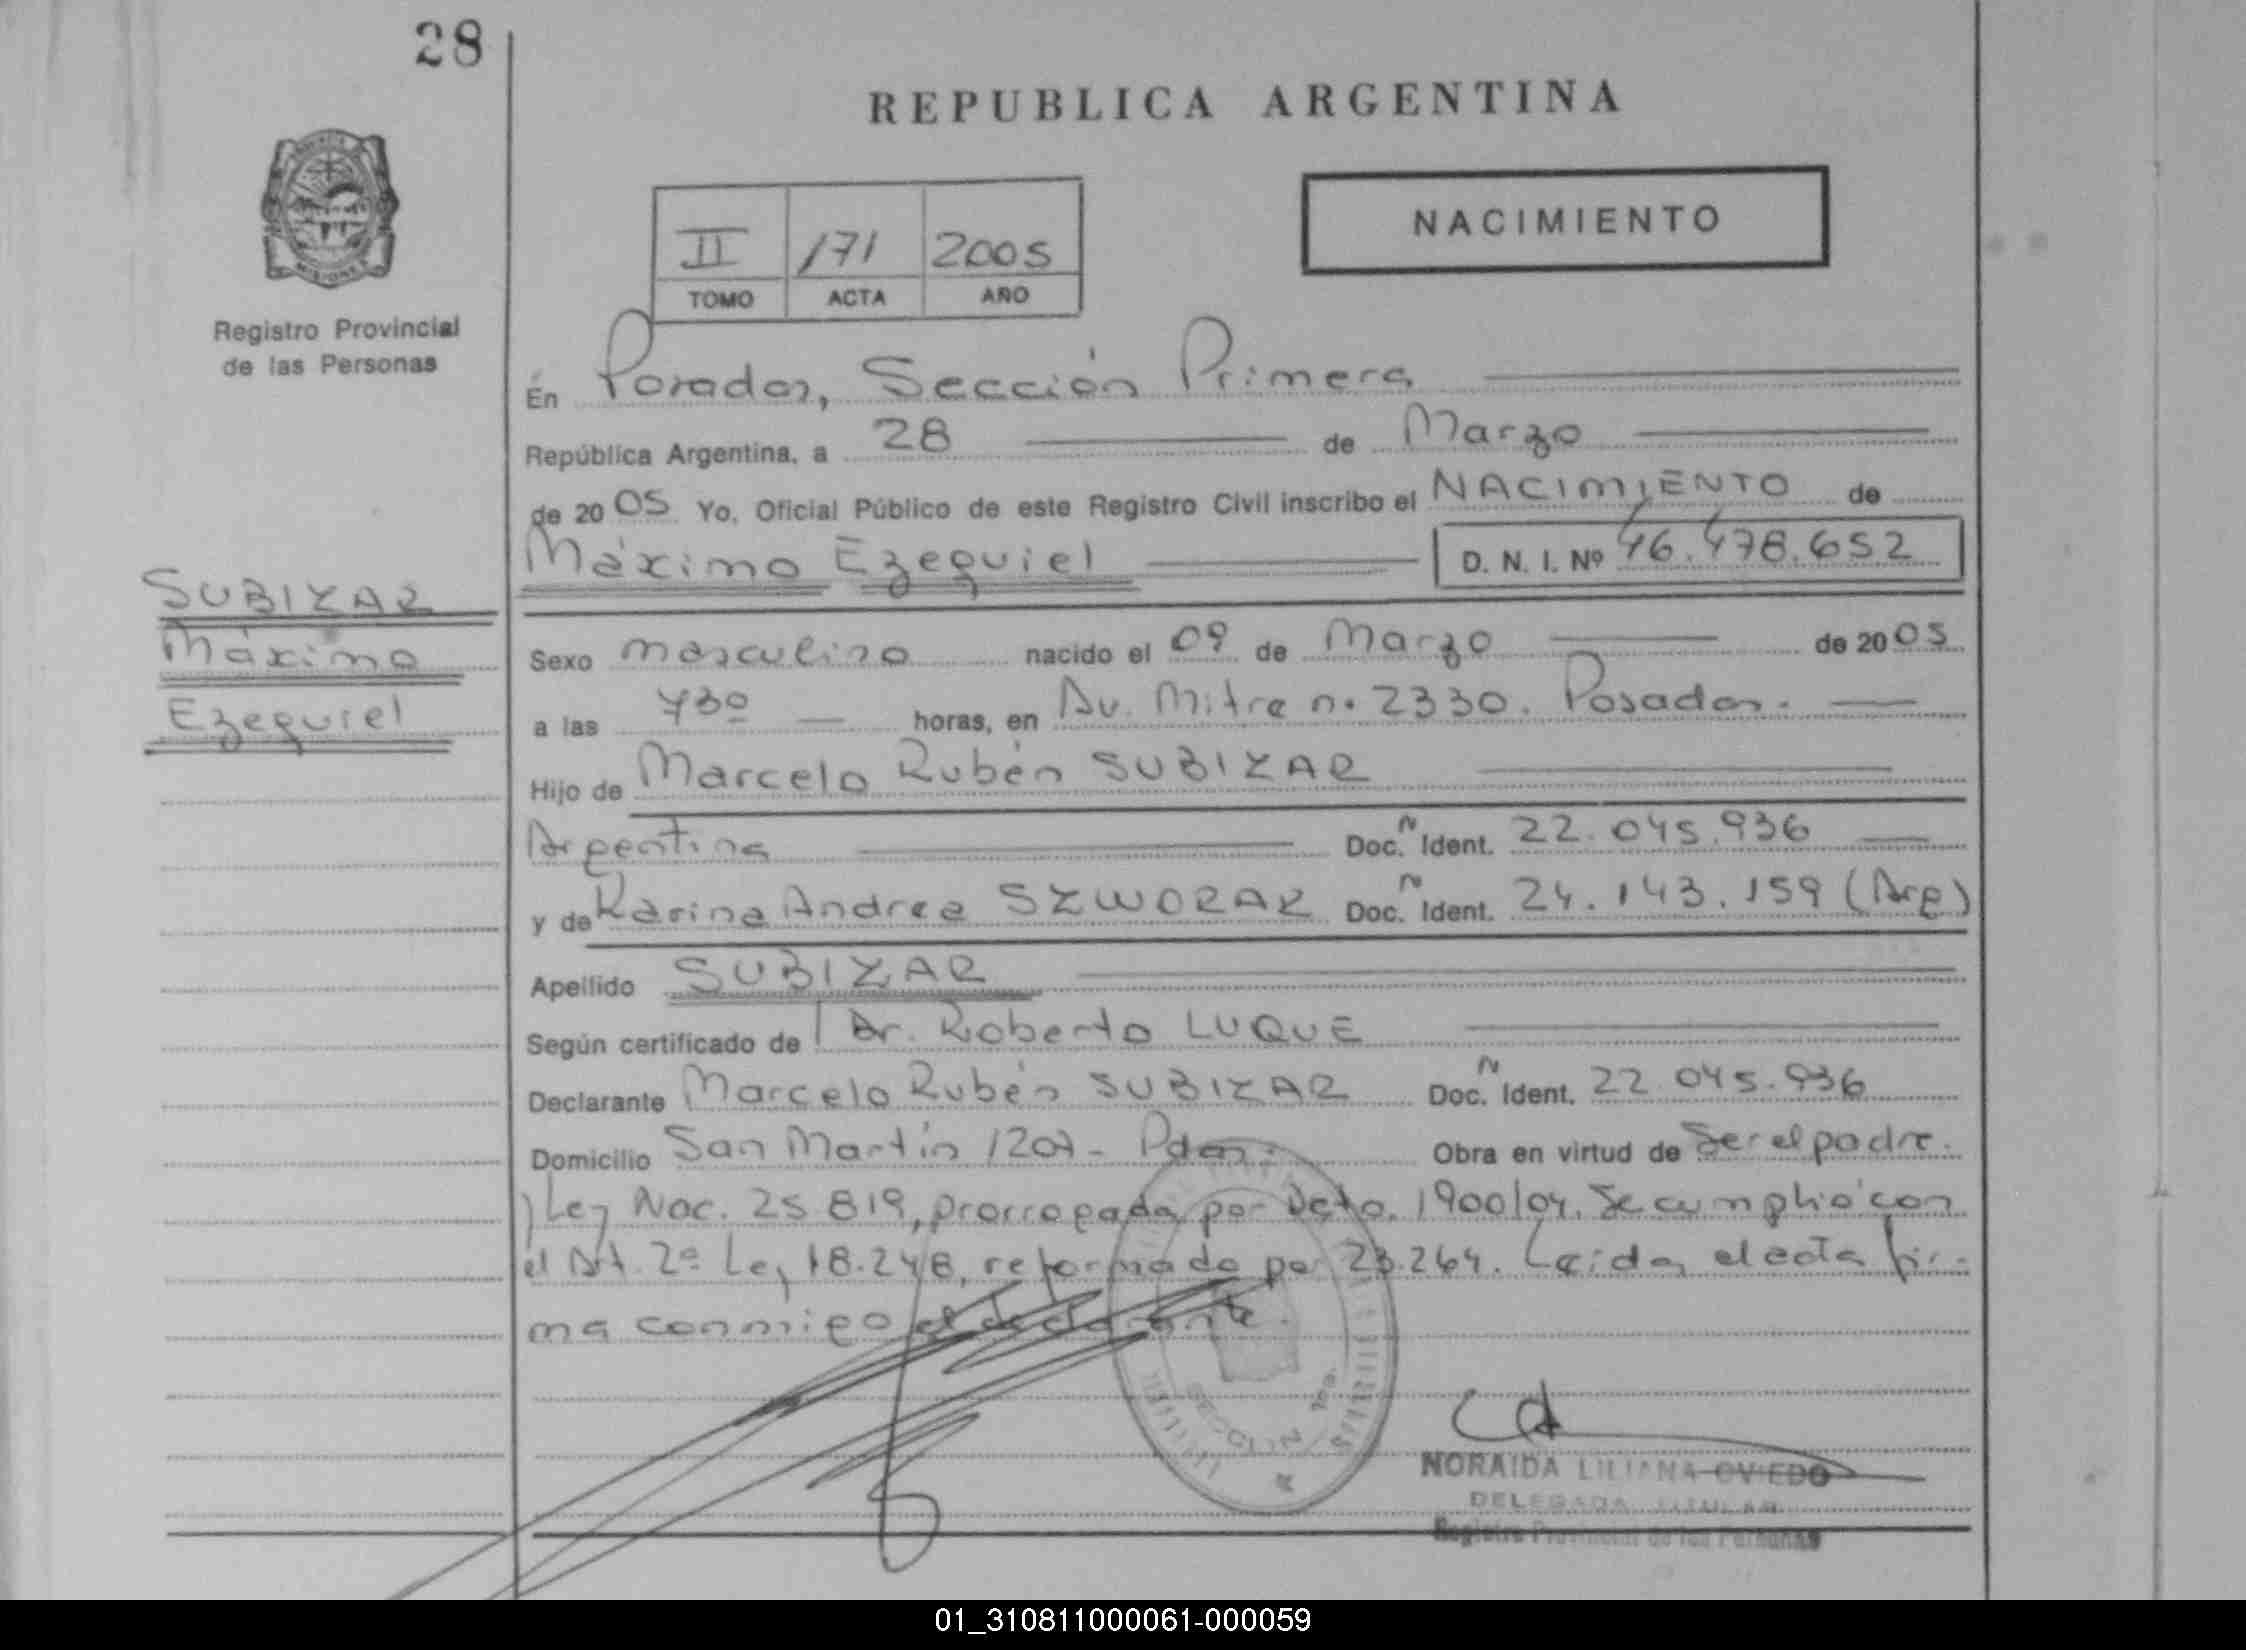 28
REPUBLICA ARGENTINA
MISIONES
Registro Provincial
de las Personas
II 171 2005
TOMO ACTA AÑO
NACIMIENTO
En Posadas, Sección Primera
República Argentina, a 28 de Marzo
de 2005 Yo, Oficial Público de este Registro Civil inscribo el NACIMIENTO de
Máximo Ezequiel D. N. I. Nº 46.478.652
SUBIZAR
Máximo
Ezequiel
Sexo masculino nacido el 09 de Marzo de 2005
a las 730 horas, en Av. Mitre nº 2330. Posadas.
Hijo de Marcelo Rubén SUBIZAR
Argentina Doc. N Ident. 22.045.936
y de Karina Andrea SZWORAK Doc. N Ident. 24.143.159 (Arg)
Apellido SUBIZAR
Según certificado de Dr. Roberto LUQUE
Declarante Marcelo Rubén SUBIZAR Doc. N Ident. 22.045.936
Domicilio San Martín 1207 - Pdas. Obra en virtud de Ser el padre.
Ley Nac. 25 819, prorrogada por Dcto. 1900/04. Se cumplió con
el Art. 2º Ley 18.248, reformado por 23.264. Leída el acta fir-
ma conmigo el declarante.
SECCION 1ra.
NORAIDA LILIANA OVIEDO
DELEGADA TITULAR
Registro Provincial de las Personas
01_310811000061-000059